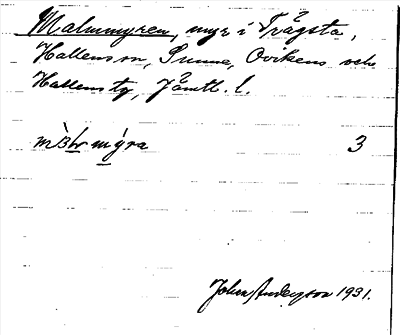 Malmmyren, myr i Trågsta,
Hallens sn, Sunne, Ovikens och
Hallens tg, Jämtl. l.
myra 3
John Anderson 1931.